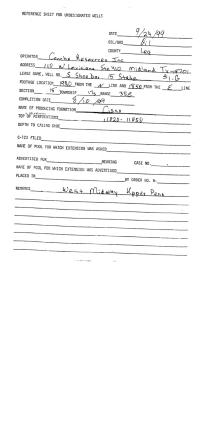 REFERENCE SHEET FOR UNDESIGNATED WELLS
DATE 9/24/99
OIL/GAS Oil
COUNTY Lea
OPERATOR Resources Inc
ADDRESS Midland Tx 79701
LEASE NAME, WELL NO S Shoe bar 15 State #1-G
FOOTAGE LOCATION 1980 FROM THE N LINE AND 1830 FROM THE E LINE
SECTION 15 TOWNSHIP 17s RANGE 35E
COMPLETION DATE 8/10/99
NAME OF PRODUCING FORMATION Cisco
TOP OF PERFORATIONS 11820-11850
DEPTH TO CASING SHOE
C-123 FILED
NAME OF POOL FOR WHICH EXTENSION WAS ASKED
ADVERTISED FOR HEARING CASE NO.
NAME OF POOL FOR WHICH EXTENSION WAS ADVERTISED
PLACED IN BY ORDER NO. R-
REMARKS West Midway Upper Penn